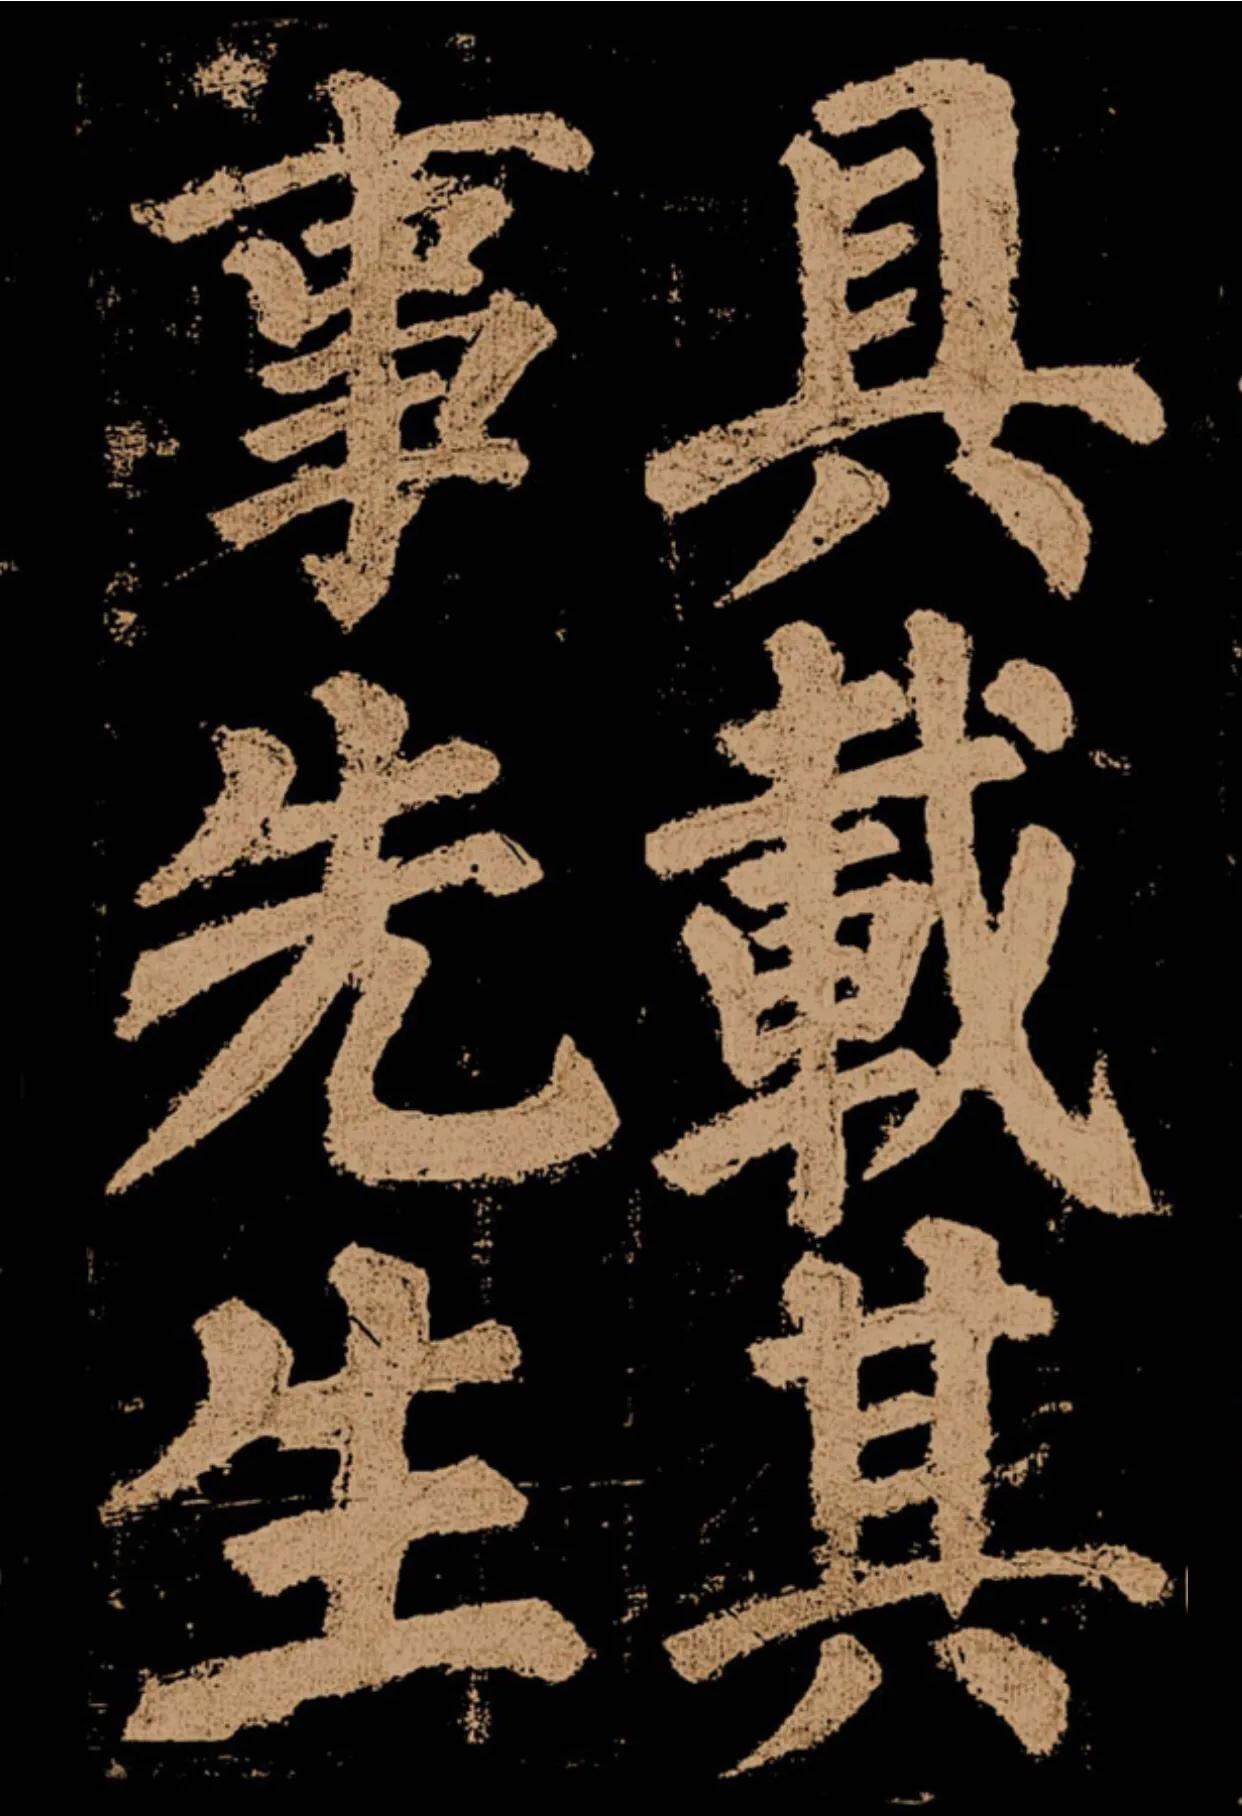 具載其
事先生